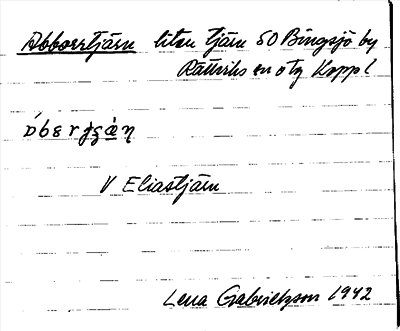 Abborrtjärn liten tjärn SO Bingsjö by
Rättviks sn otg Koppl
V Eliastjärn
Lena Gabrielsson 1942